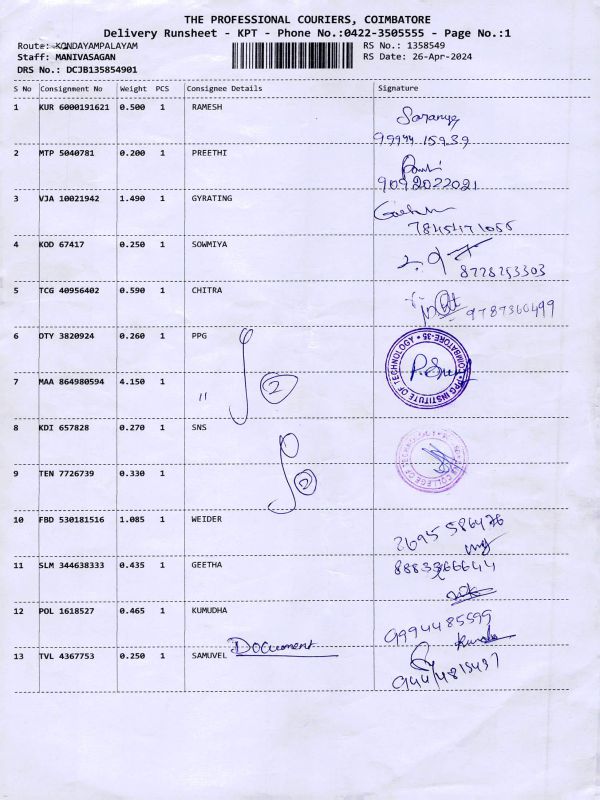 THE PROFESSIONAL COURIERS, COIMBATORE
Delivery Runsheet - KPT - Phone No.:0422-3505555 - Page No.:1
Route: KONDAYAMPALAYAM
RS No.: 1358549
Staff: MANIVASAGAN
RS Date: 26-Apr-2024
DRS No.: DCJB135854901
S No Consignment No Weight PCS Consignee Details Signature
1 KUR 6000191621 0.500 1 RAMESH Saranya
99944 15939
2 MTP 5040781 0.200 1 PREETHI
9092022021
3 VJA 10021942 1.490 1 GYRATING
7845471055
4 KOD 67417 0.250 1 SOWMIYA
8728253303
5 TCG 40956402 0.590 1 CHITRA
9787360499
6 DTY 3820924 0.260 1 PPG
PPG INSTITUTE OF TECHNOLOGY COIMBATORE-35
7 MAA 864980594 4.150 1 " 2
8 KDI 657828 0.270 1 SNS
COLLEGE OF
9 TEN 7726739 0.330 1 2
10 FBD 530181516 1.085 1 WEIDER
11 SLM 344638333 0.435 1 GEETHA
12 POL 1618527 0.465 1 KUMUDHA
9994485599
13 TVL 4367753 0.250 1 SAMUVEL Document